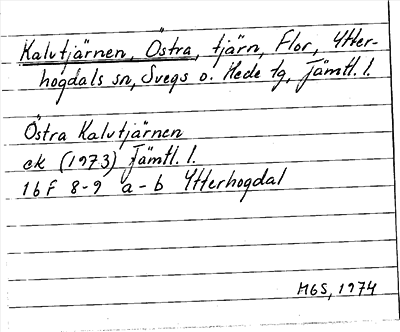 Kalvtjärnen, Östra, tjärn, Flor, Ytter-
hogdals sn, Svegs o. Hede tg, Jämtl. l.
Östra Kalvtjärnen
ek (1973) Jämtl. l.
16 F 8-9 a-b Ytterhogdal
MGS, 1974